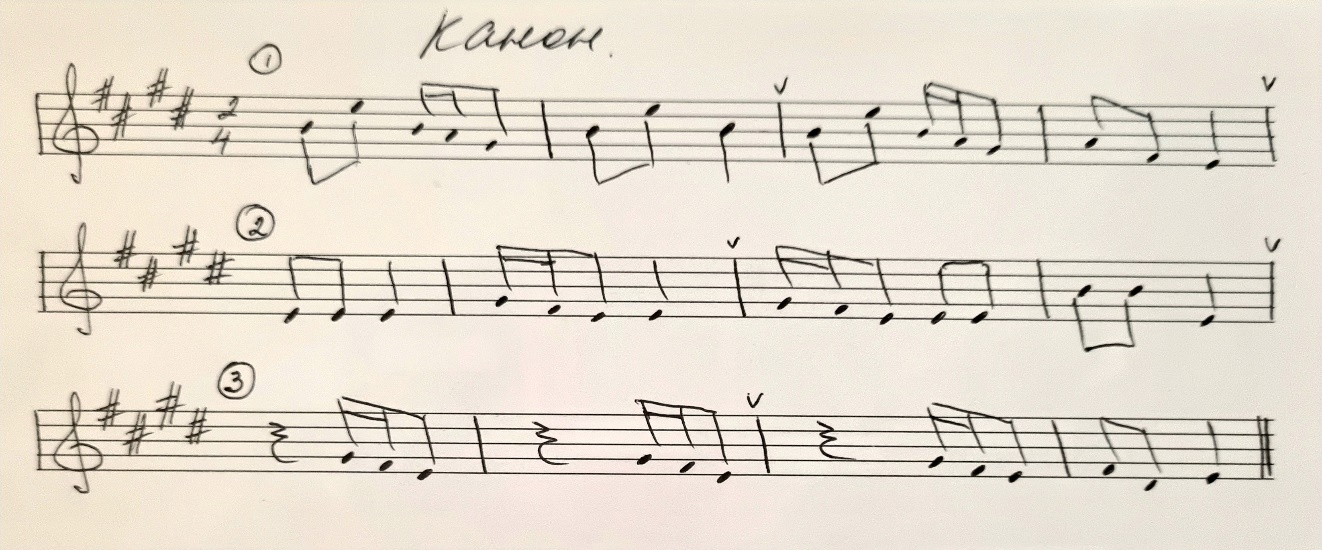 Канон.
1
2
4
2
3